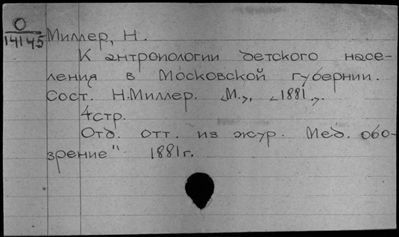 О
14145
Миллер, Н.
К антропологии детского насе-
ления в Московской губернии.
Сост. Н.Миллер. "М.", "1881".
4стр.
Отд. отт. из жур. Мед. обо-
зрение" 1881г.